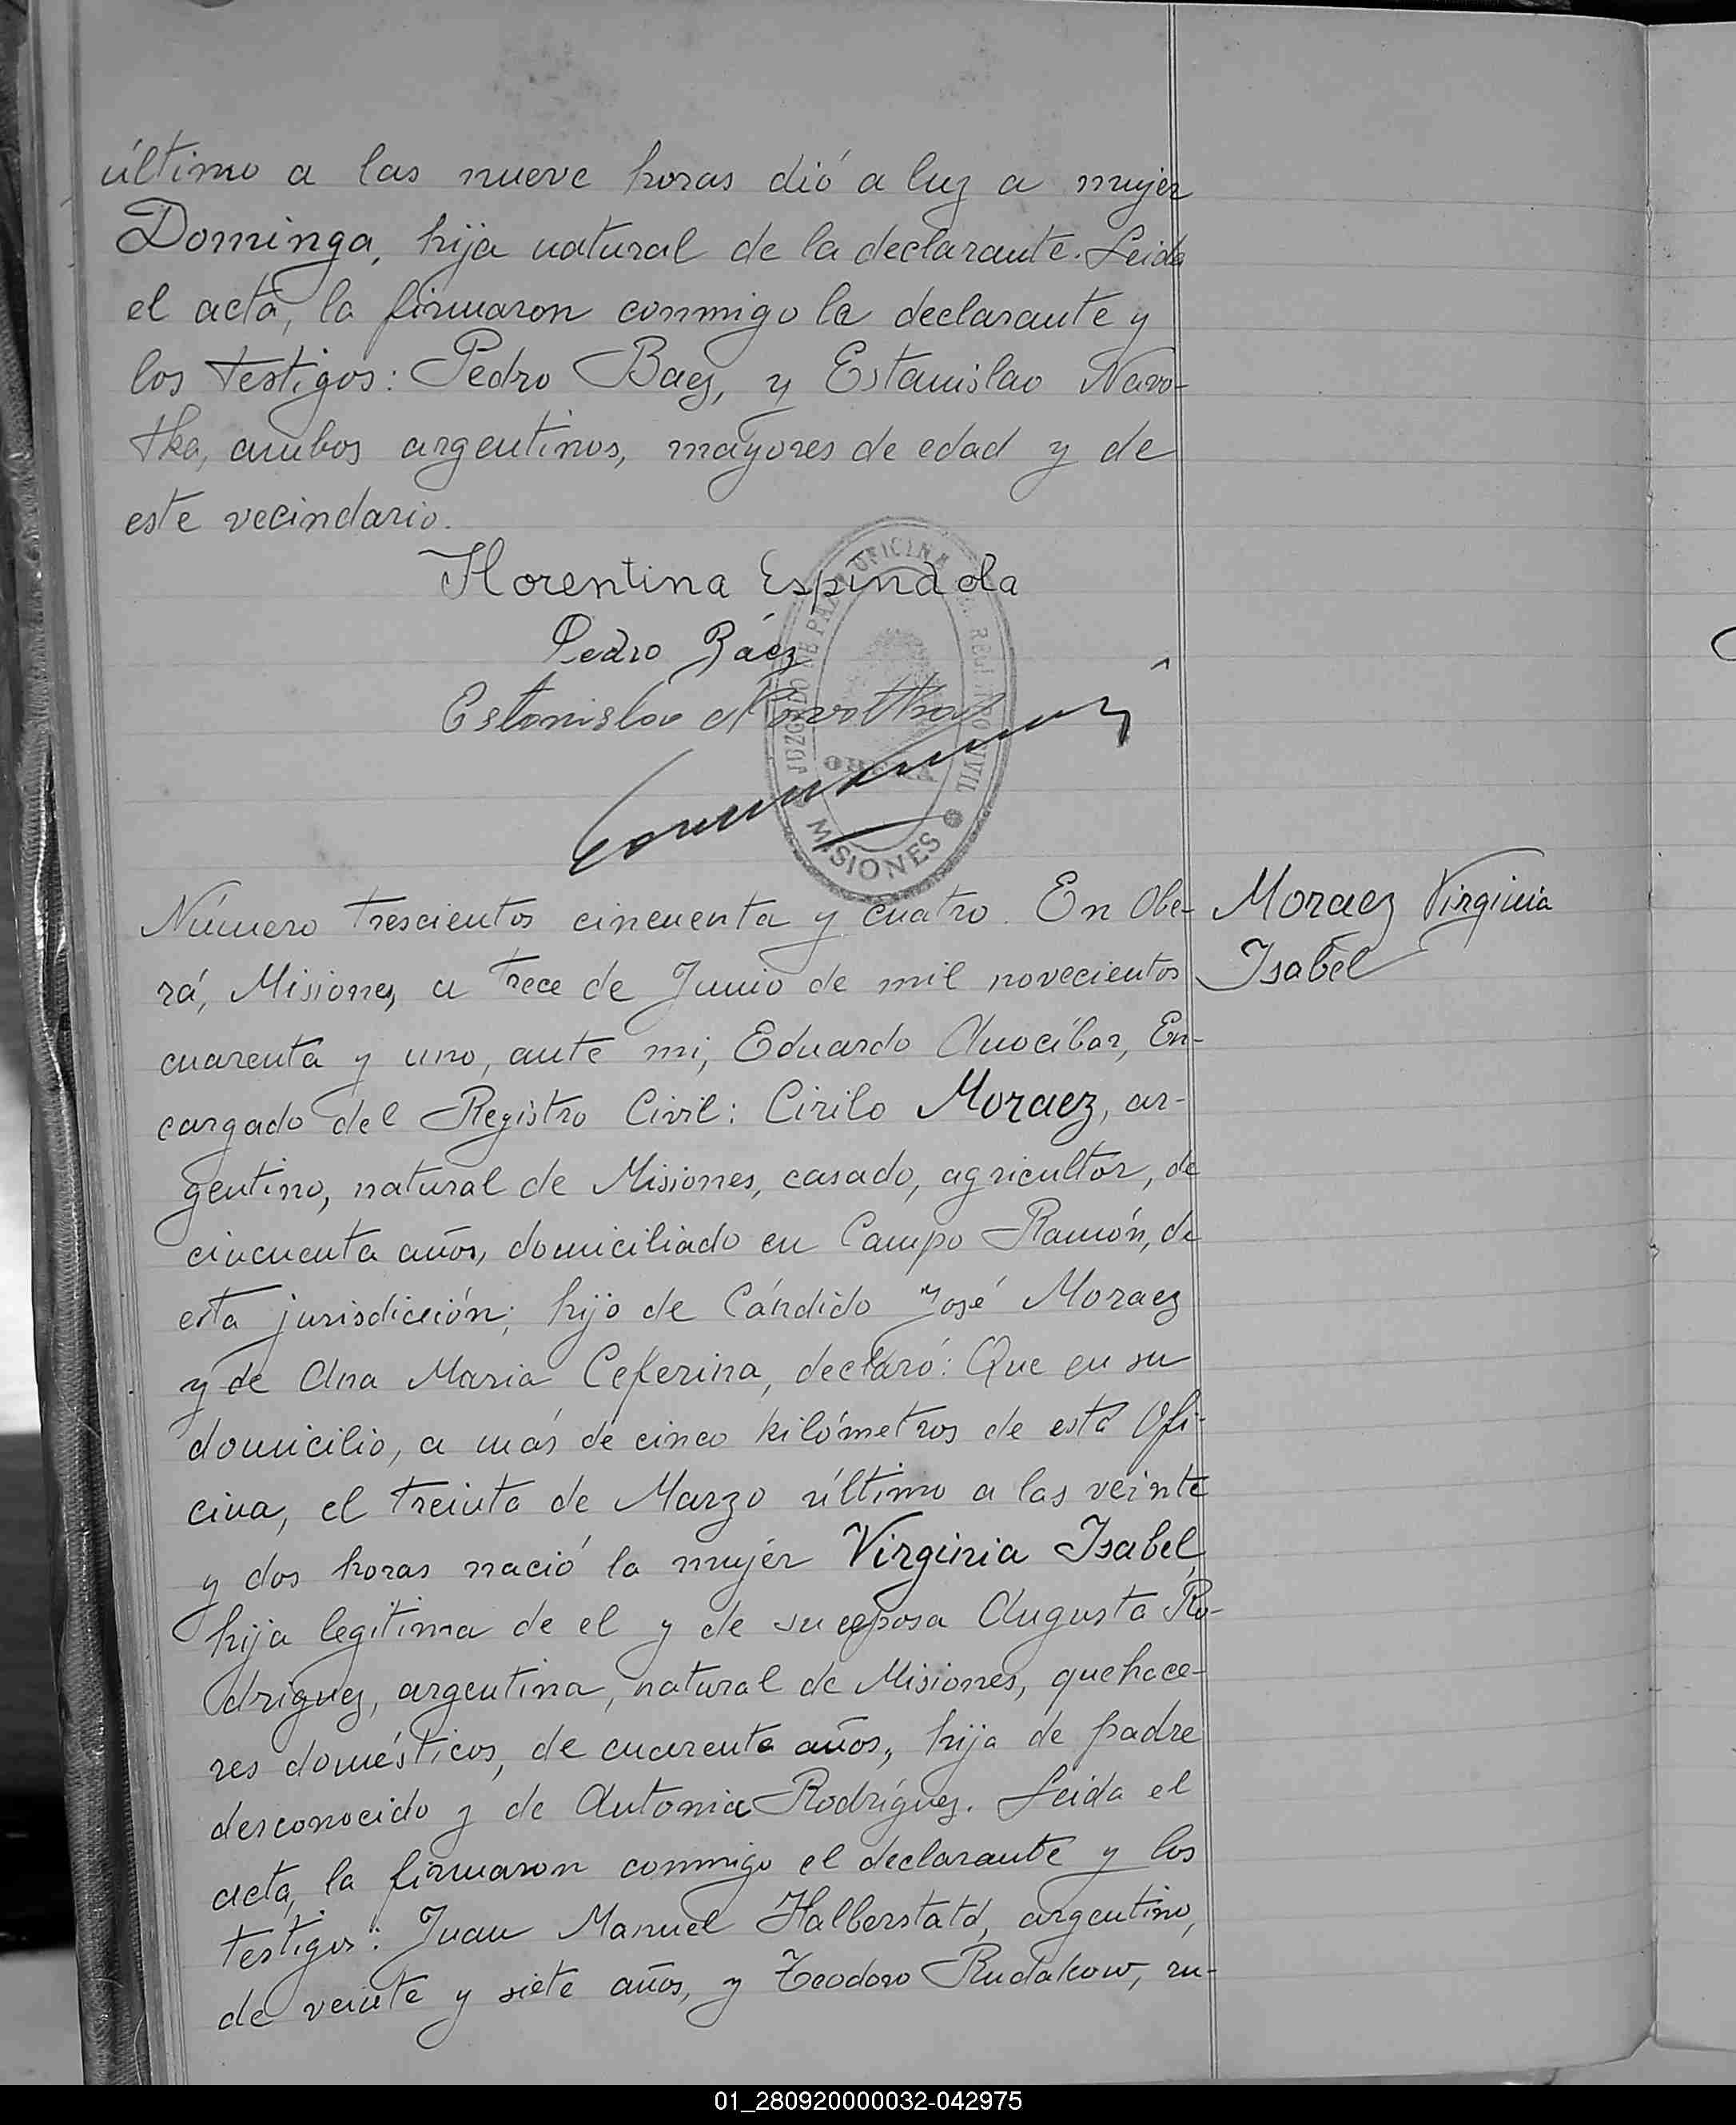 último a las nueve horas dió a luz a mujer
Dominga, hija natural de la declarante. Leida
el acta, la firmaron conmigo la declarante y
los testigos: Pedro Baez, y Estanislao Navo-
tka, ambos argentinos, mayores de edad y de
este vecindario.
Florentina Espindola
Pedro Báez
Estanislao
JUZGADO DE PAZ Y OFICINA DEL REGISTRO CIVIL
OBERA
MISIONES
Número trescientos cincuenta y cuatro. En Obe-
rá, Misiones, a trece de Junio de mil novecientos
cuarenta y uno, ante mi, Eduardo Anocibar, En-
cargado del Registro Civil: Cirilo Moraez, ar-
gentino, natural de Misiones, casado, agricultor, de
cincuenta años, domiciliado en Campo Ramón, de
esta jurisdicción; hijo de Cándido José Moraez
y de Ana Maria Ceferina, declaró: Que en su
domicilio, a más de cinco kilómetros de esta Ofi-
cina, el treinta de Marzo último a las veinte
y dos horas nació la mujer Virginia Isabel,
hija legitima de el y de su esposa Augusta Ro-
driguez, argentina, natural de Misiones, quehace-
res domésticos, de cuarenta años, hija de padre
desconocido y de Antonia Rodríguez. Leida el
acta, la firmaron conmigo el declarante y los
testigos: Juan Manuel Halberstatd, argentino,
de veinte y siete años, y Teodoro Rudakow, ru-
Moraez Virginia
Isabel
01_280920000032-042975